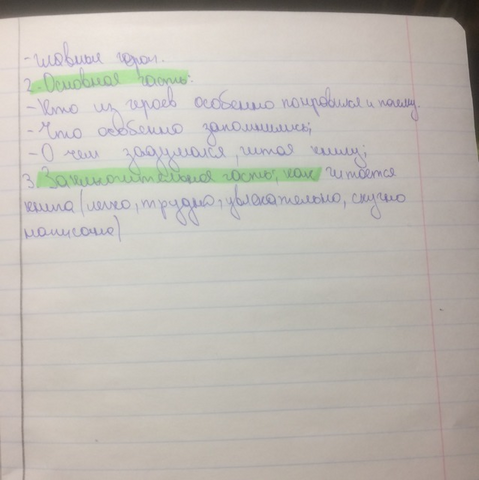 - главные герои.
2. Основная часть:
- Кто из героев особенно понравился и почему.
- Что особенно запомнилось;
- О чем задумался, читая книгу;
3. Заключительная часть, как читается
книга (легко, трудно, увлекательно, скучно
написана)